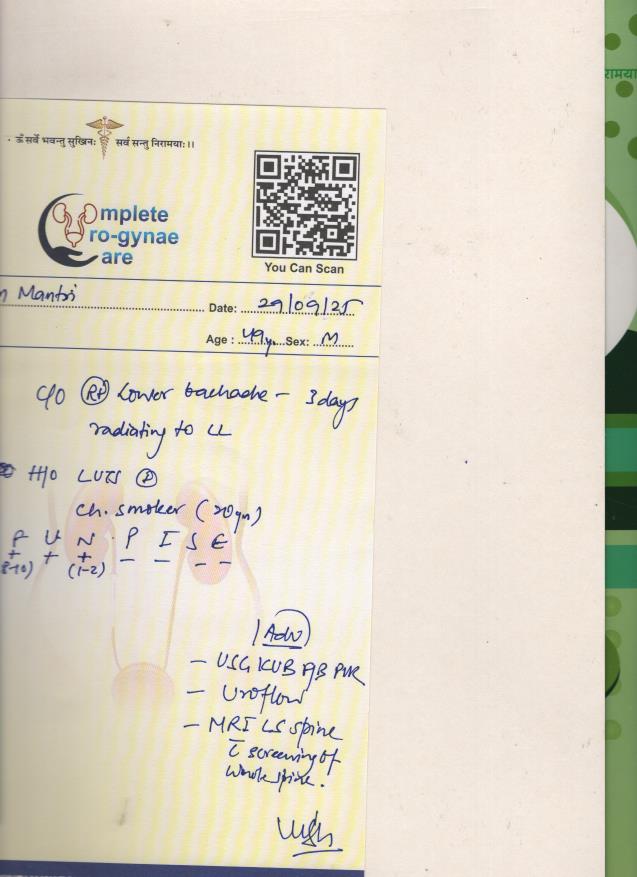 रामया
ॐ सर्वे भवन्तु सुखिनः सर्व सन्तु निरामयाः।।
mplete
ro-gynae
are
You Can Scan
n Mantri Date: 29/09/25
Age : 49y Sex: M
C/O Rt Lower backache - 3 days
radiating to LL
H/O LUTS
Ch. smoker (20yr)
F U N P I S E
+ + + - - - -
8-10) (1-2)
Adv
- USG KUB PVR
- Uroflow
- MRI LS spine
c̄ screening of
whole spine.